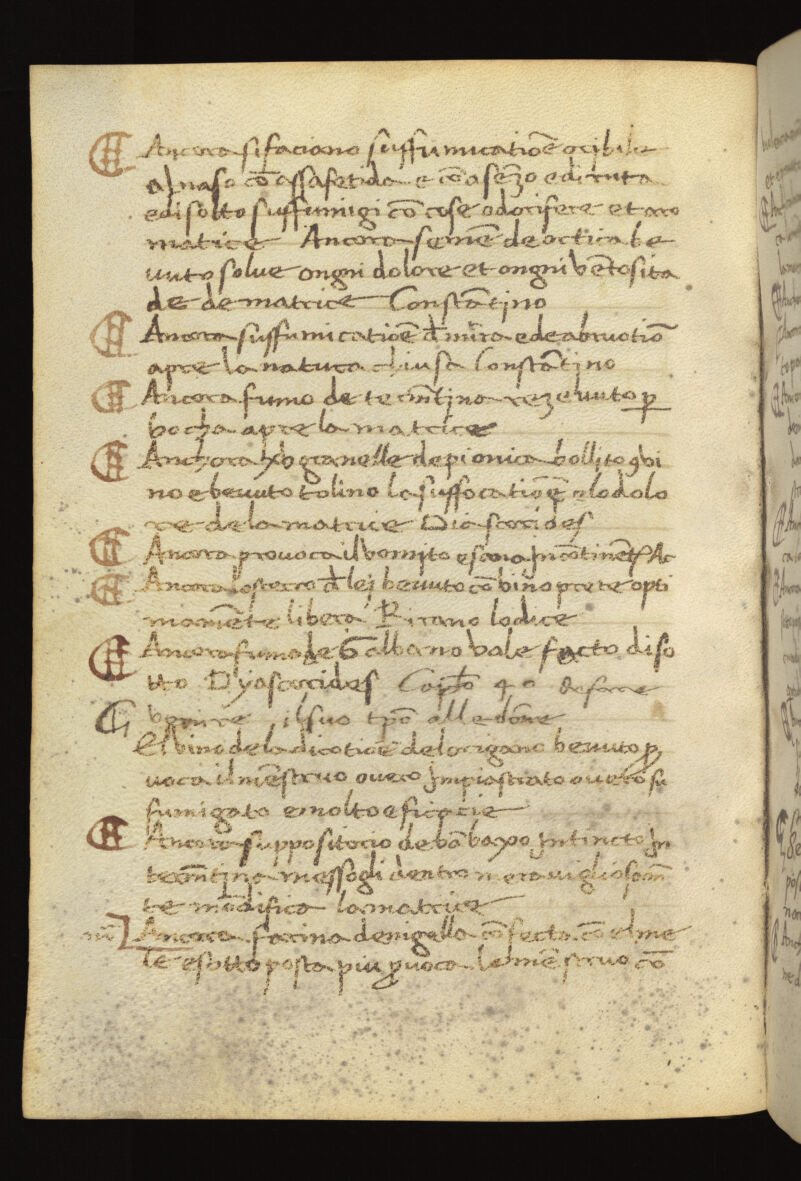 Ancora si faciano suffumicatiōe oribile
al naso cō assafetida e cō asēzo e di ruta
e di sotto suffumigi cō cose odorifere et aro
matice Ancora semē de ortica be
vuto solve ongni dolore et ongni vētosita
de de matrice Constātino
Ancora suffumicatiōe d mirra e de abruotio
apre la natura chiusa Constātino
Ancora fumo de termētina rezevuto p
bocha apre la matrice
Anchora xv granelle de pionica bollito 9 vi
no e bevuto tolino la suffocatiōe e lo dolo
re de la matrice Diascorides
Ancora provoca il vomito e sana Incōtinēte
Ancora lo sterco d lei bevuto cō vino prete opti
mamēte libera Kirano lo dice
Ancora fumo de Galbano vale facto di so
tto Dyascorides Capło 40 de fare
venire il suo tpō alle dōne
El vino de la dicotiōe del origano bevuto p
voca il mēstruo overo Impiastrato overo su
fumigato e molto eficacie
Ancora suppositorio de bābaxo Intincto In
termētina messogli dentro meravigliosam
te mōdifica la matrice
Ancora farina de nigella cōfecta cō el me
le e sotto posta piu pvoca lo mēstruo cō